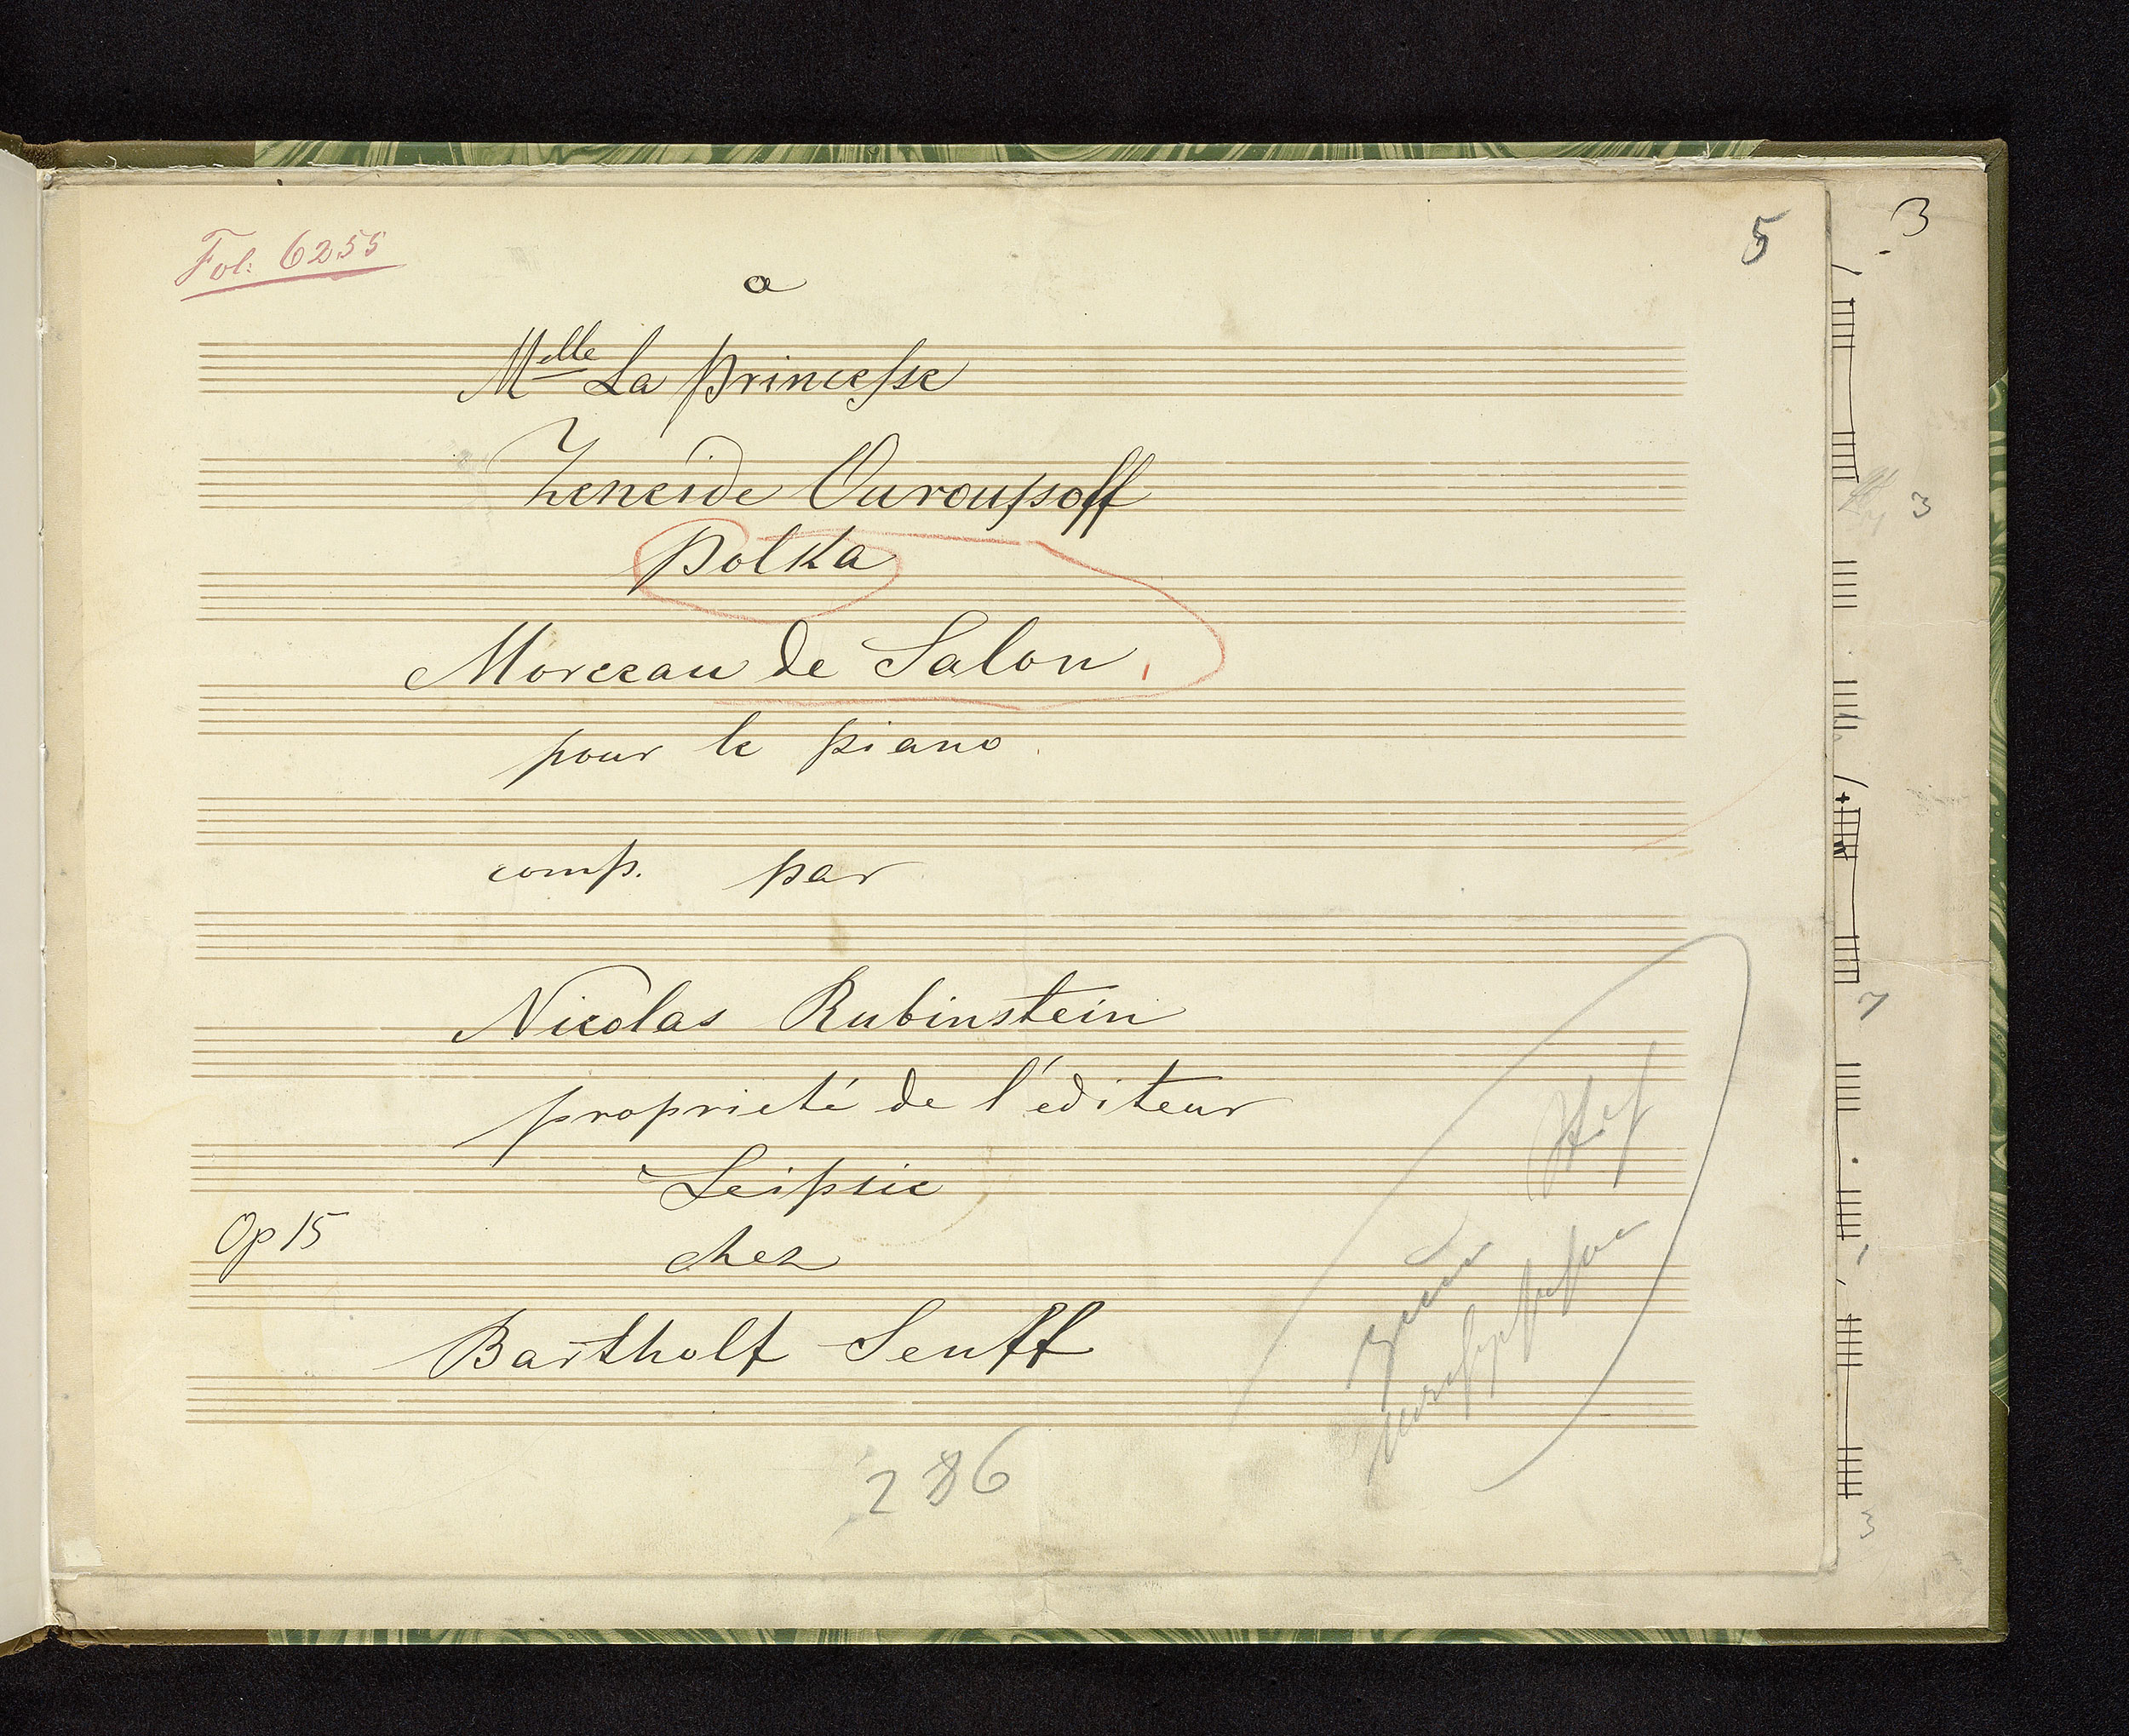 Fol: 6255
5
3
a
Mlle La princesse
Zeneide Ouroussoff
polka
3
Morceau de Salon.
pour le piano
comp. par
7
Nicolas Rubinstein
proprieté de l'éditeur
Leipsic
Op 15
chez
Bartholf Senff
286
3